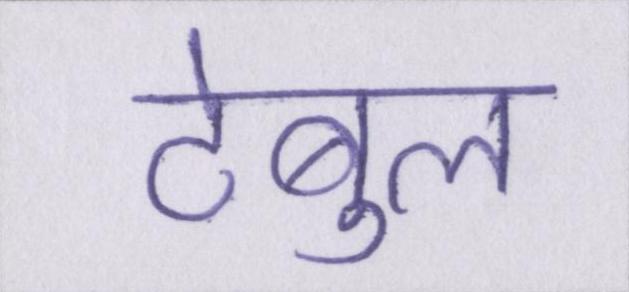 टेबुल